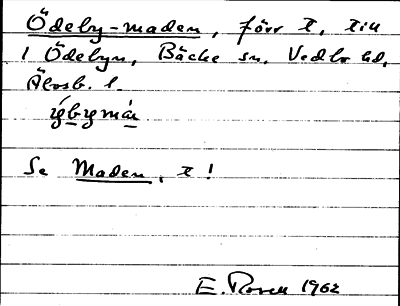 Ödeby-maden, förr t, till
1 Ödebyn, Bäcke sn, Vedbo hd,
Älvsb. l.
ýbymá̱ɴ
Se Maden, t!
E. Rosell 1962